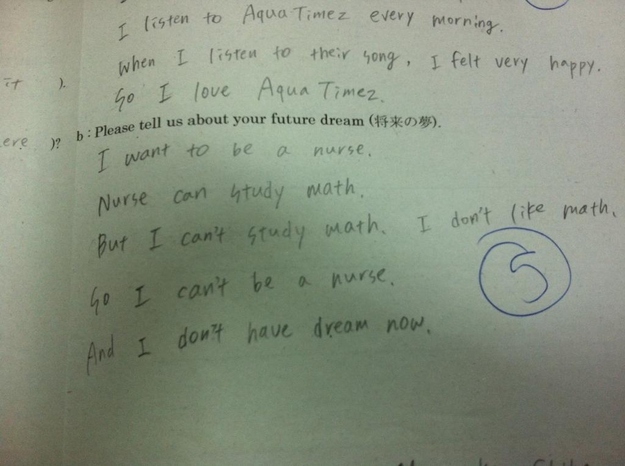 I listen to Aqua Timez every morning.
When I listen to their song, I felt very happy.
it ).
So I love Aqua Timez.
ere )? b : Please tell us about your future dream (将来の夢).
I want to be a nurse.
Nurse can study math.
But I can't study math. I don't like math.
So I can't be a nurse.
5
And I don't have dream now.